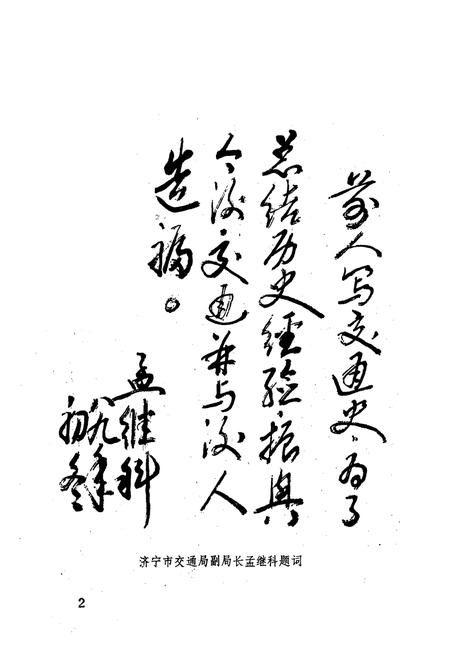 前人写交通史，为了
总结历史经验，振興
今後交通并与後人
造福。
孟继科
八九年
初冬
济宁市交通局副局长孟继科题词
2